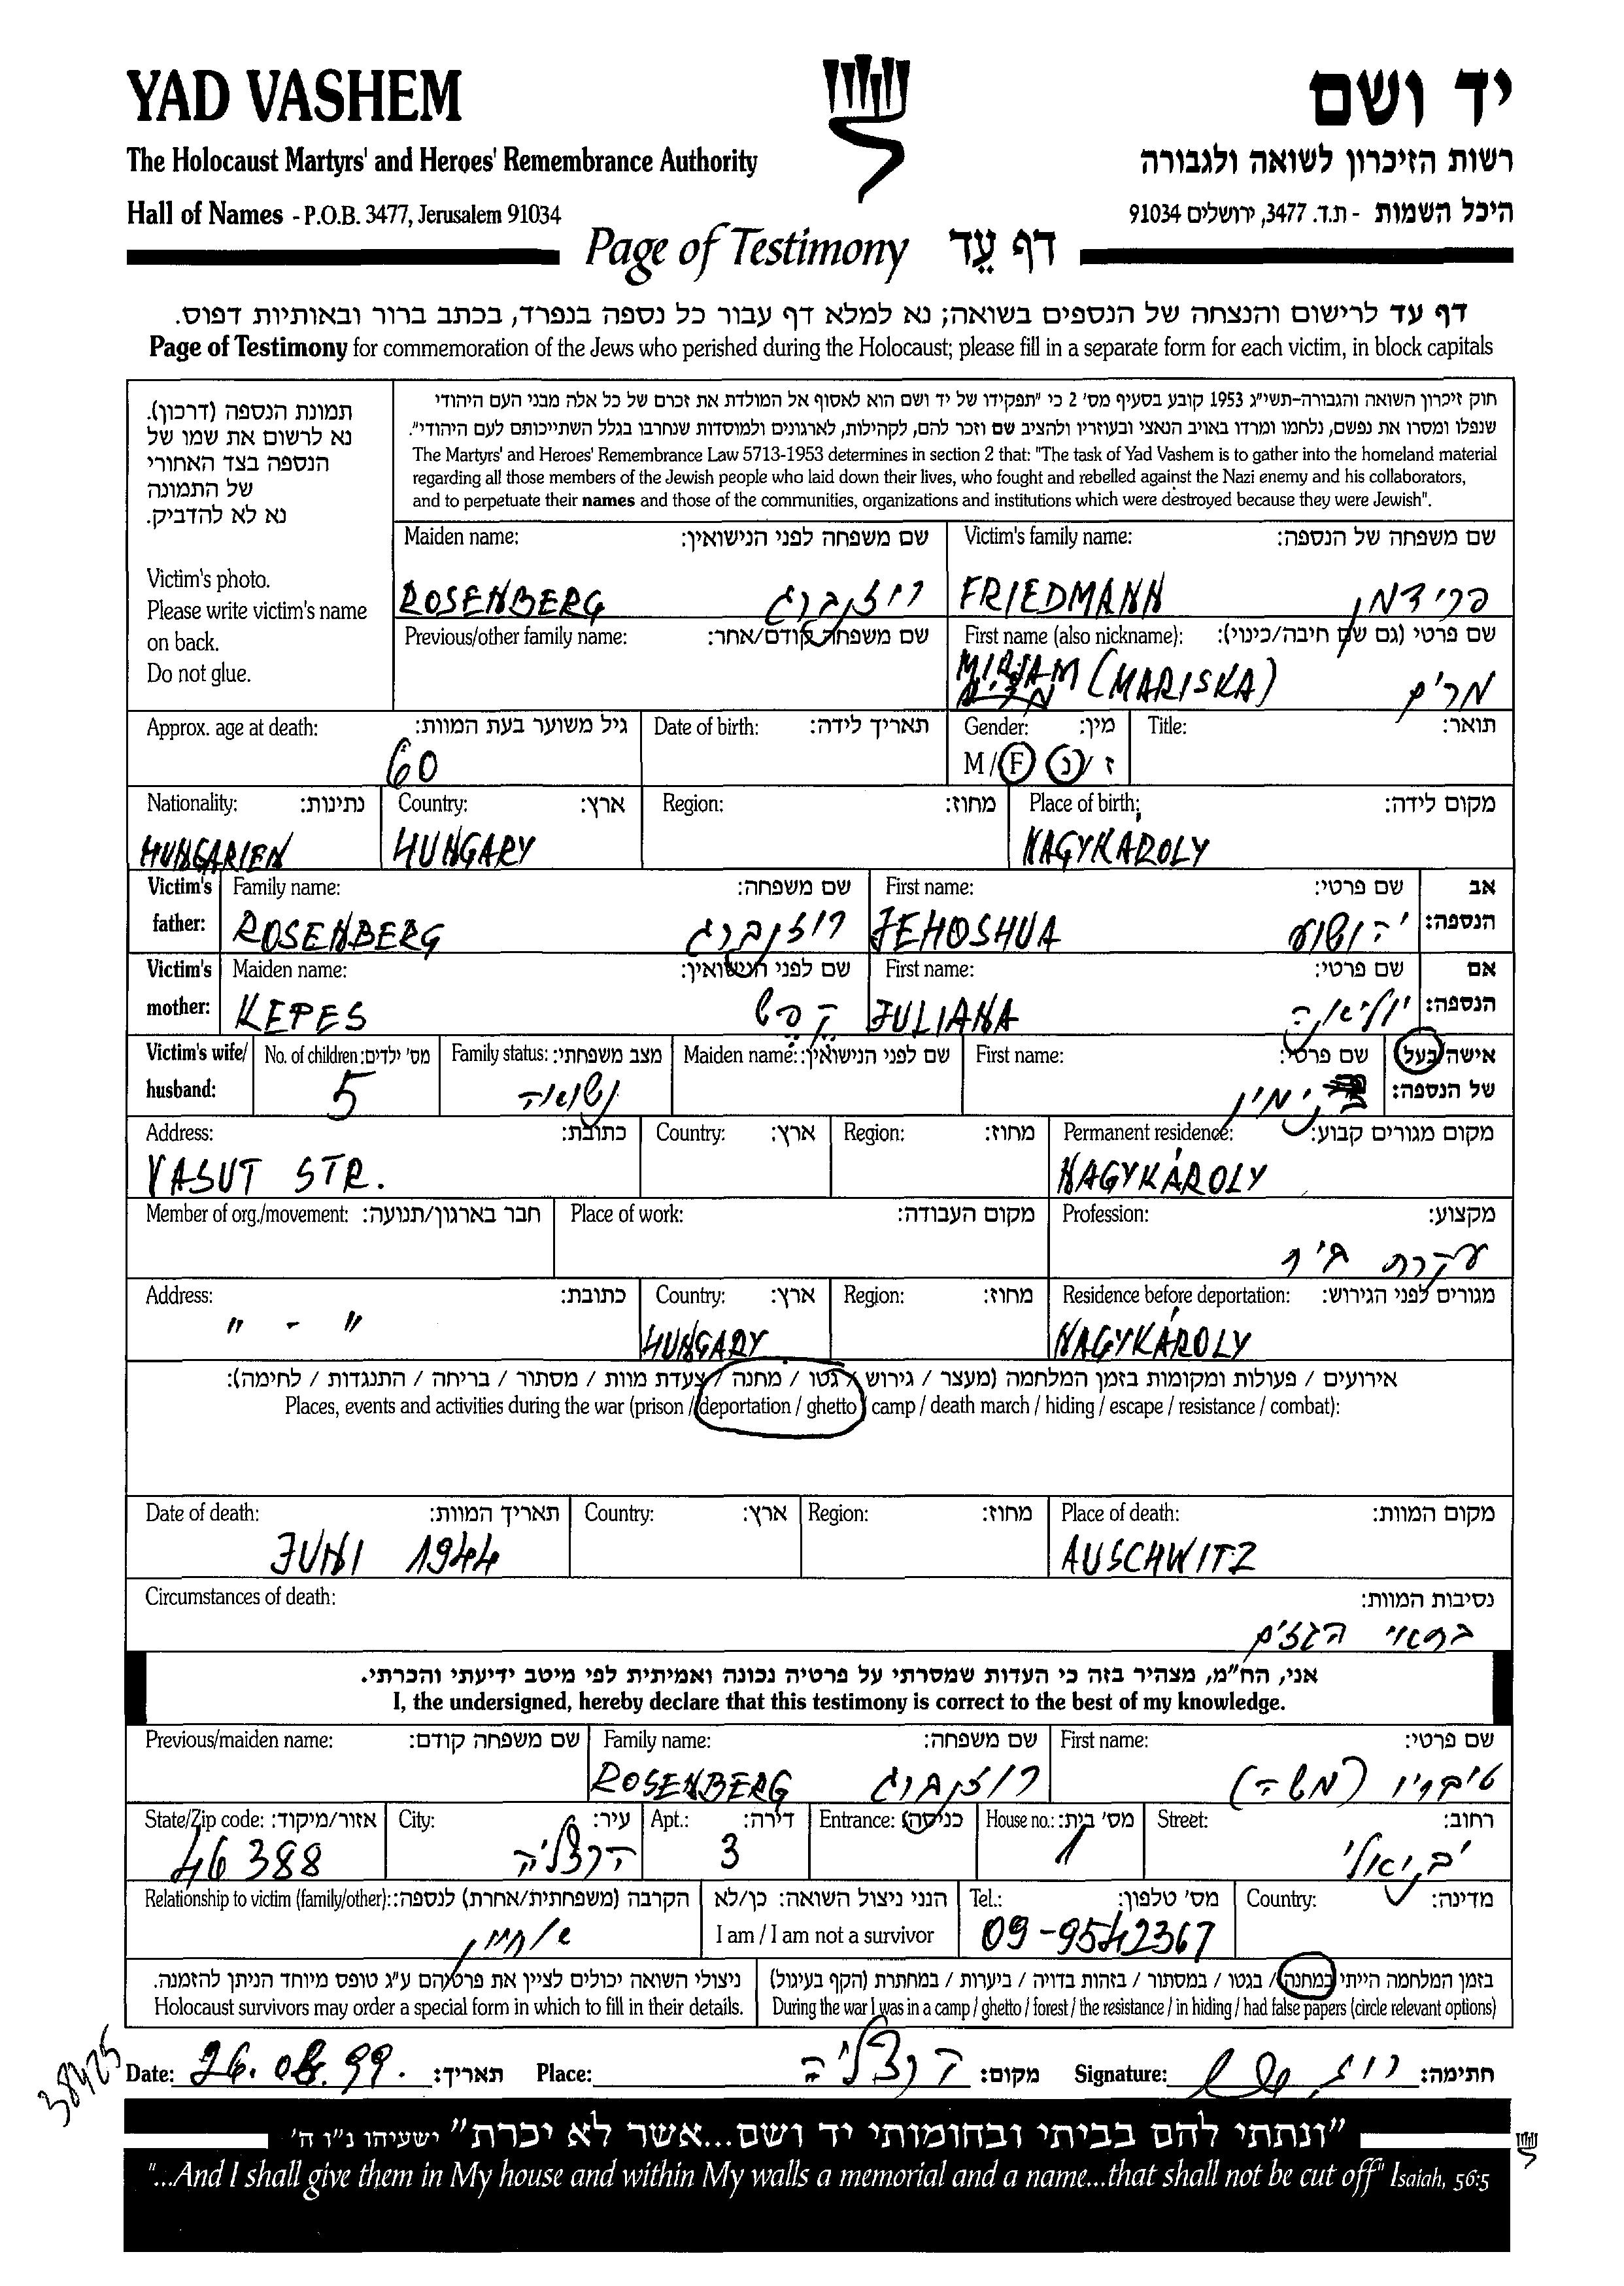 YAD VASHEM
יד ושם
The Holocaust Martyrs' and Heroes' Remembrance Authority
רשות הזיכרון לשואה ולגבורה
Hall of Names - P.O.B. 3477, Jerusalem 91034
היכל השמות - ת.ד. 3477, ירושלים 91034
Page of Testimony דף עֵד
דף עד לרישום והנצחה של הנספים בשואה; נא למלא דף עבור כל נספה בנפרד, בכתב ברור ובאותיות דפוס.
Page of Testimony for commemoration of the Jews who perished during the Holocaust; please fill in a separate form for each victim, in block capitals
תמונת הנספה (דרכון).
נא לרשום את שמו של
הנספה בצד האחורי
של התמונה
נא לא להדביק.
Victim's photo.
Please write victim's name
on back.
Do not glue.
חוק זיכרון השואה והגבורה-תשי"ג 1953 קובע בסעיף מס' 2 כי "תפקידו של יד ושם הוא לאסוף אל המולדת את זכרם של כל אלה מבני העם היהודי
שנפלו ומסרו את נפשם, נלחמו ומרדו באויב הנאצי ובעוזריו ולהציב שם וזכר להם, לקהילות, לארגונים ולמוסדות שנחרבו בגלל השתייכותם לעם היהודי".
The Martyrs' and Heroes' Remembrance Law 5713-1953 determines in section 2 that: "The task of Yad Vashem is to gather into the homeland material
regarding all those members of the Jewish people who laid down their lives, who fought and rebelled against the Nazi enemy and his collaborators,
and to perpetuate their names and those of the communities, organizations and institutions which were destroyed because they were Jewish".
Maiden name: שם משפחה לפני הנישואין:
ROSENBERG רוזנברג
Victim's family name: שם משפחה של הנספה:
FRIEDMANN פרידמן
Previous/other family name: שם משפחה קודם/אחר:
First name (also nickname): שם פרטי (גם שם חיבה/כינוי):
MIRJAM (MARISKA) מרים
Approx. age at death: גיל משוער בעת המוות:
60
Date of birth: תאריך לידה:
Gender: מין:
M / F נ / ז
Title: תואר:
Nationality: נתינות:
HUNGARIEN
Country: ארץ:
HUNGARY
Region: מחוז:
Place of birth: מקום לידה:
NAGYKÁROLY
Victim's father: Family name: שם משפחה:
ROSENBERG רוזנברג
First name: שם פרטי:
JEHOSHUA יהושוע
אב הנספה:
Victim's mother: Maiden name: שם לפני הנישואין:
KEPES קפש
First name: שם פרטי:
JULIANA יוליאנה
אם הנספה:
Victim's wife/ husband:
No. of children: מס' ילדים:
5
Family status: מצב משפחתי:
נשואה
Maiden name: שם לפני הנישואין:
First name: שם פרטי:
בנימין
אישה/בעל של הנספה:
Address: כתובת:
VASUT STR.
Country: ארץ:
Region: מחוז:
Permanent residence: מקום מגורים קבוע:
NAGYKÁROLY
Member of org./movement: חבר בארגון/תנועה:
Place of work: מקום העבודה:
Profession: מקצוע:
עקרת בית
Address: כתובת:
" - "
Country: ארץ:
HUNGARY
Region: מחוז:
Residence before deportation: מגורים לפני הגירוש:
NAGYKÁROLY
אירועים / פעולות ומקומות בזמן המלחמה (מעצר / גירוש / גטו / מחנה / צעדת מוות / מסתור / בריחה / התנגדות / לחימה):
Places, events and activities during the war (prison / deportation / ghetto / camp / death march / hiding / escape / resistance / combat):
Date of death: תאריך המוות:
JUNI 1944
Country: ארץ:
Region: מחוז:
Place of death: מקום המוות:
AUSCHWITZ
Circumstances of death: נסיבות המוות:
בתאי הגזים
אני, הח"מ, מצהיר בזה כי העדות שמסרתי על פרטיה נכונה ואמיתית לפי מיטב ידיעתי והכרתי.
I, the undersigned, hereby declare that this testimony is correct to the best of my knowledge.
Previous/maiden name: שם משפחה קודם:
Family name: שם משפחה:
ROSENBERG רוזנברג
First name: שם פרטי:
טיבריו (משה)
State/Zip code: אזור/מיקוד:
46388
City: עיר:
הרצליה
Apt.: דירה:
3
Entrance: כניסה:
House no.: מס' בית:
1
Street: רחוב:
יבניאלי
Relationship to victim (family/other): הקרבה (משפחתית/אחרת) לנספה:
אחיין
הנני ניצול השואה: כן/לא
I am / I am not a survivor
Tel.: מס' טלפון:
09-9542367
Country: מדינה:
ניצולי השואה יכולים לציין את פרטיהם ע"ג טופס מיוחד הניתן להזמנה.
Holocaust survivors may order a special form in which to fill in their details.
בזמן המלחמה הייתי במחנה / בגטו / במסתור / בזהות בדויה / ביערות / במחתרת (הקף בעיגול)
During the war I was in a camp / ghetto / forest / the resistance / in hiding / had false papers (circle relevant options)
38425
Date: 26.08.99. תאריך:
Place: הרצליה מקום:
Signature: חתימה:
"ונתתי להם בביתי ובחומותי יד ושם...אשר לא יכרת" ישעיהו נ"ו ה'
"...And I shall give them in My house and within My walls a memorial and a name...that shall not be cut off" Isaiah, 56:5